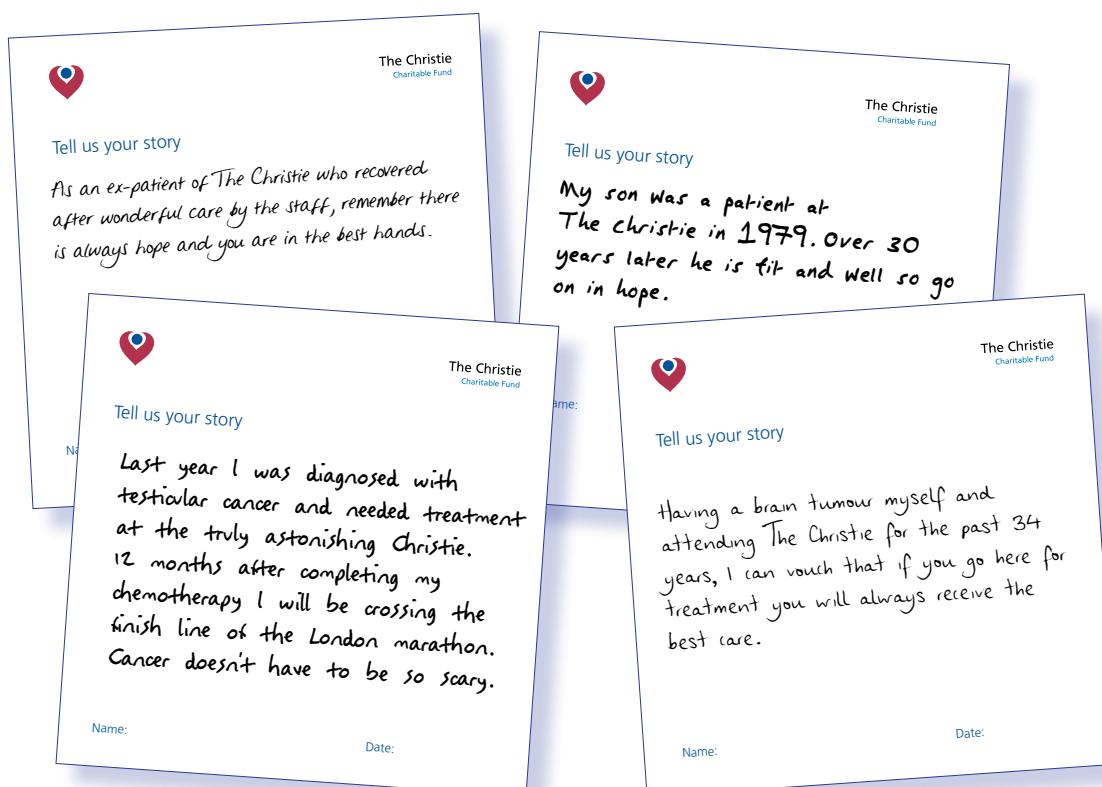 The Christie
Charitable Fund
Tell us your story
As an ex-patient of The Christie who recovered
after wonderful care by the staff, remember there
is always hope and you are in the best hands.
Na
The Christie
Charitable Fund
Tell us your story
My son was a patient at
The Christie in 1979. Over 30
years later he is fit and well so go
on in hope.
ame:
The Christie
Charitable Fund
Tell us your story
Last year I was diagnosed with
testicular cancer and needed treatment
at the truly astonishing Christie.
12 months after completing my
chemotherapy I will be crossing the
finish line of the London marathon.
Cancer doesn't have to be so scary.
Name:
Date:
The Christie
Charitable Fund
Tell us your story
Having a brain tumour myself and
attending The Christie for the past 34
years, I can vouch that if you go here for
treatment you will always receive the
best care.
Name:
Date: